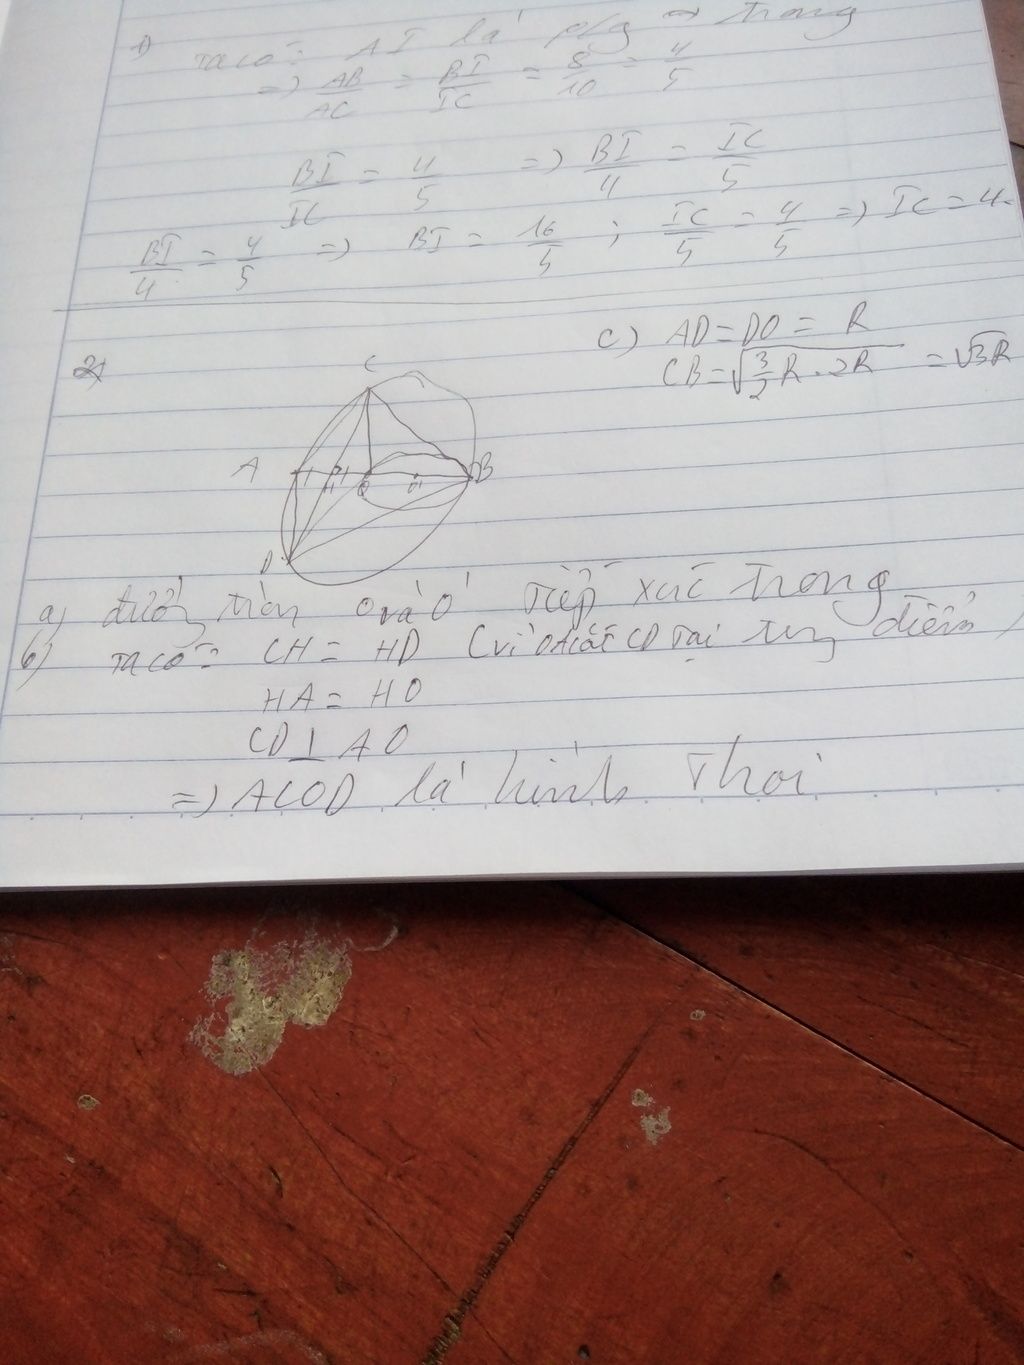 1) Ta có: AI là p/g trong
=) AB/AC = BI/IC = 8/10 = 4/5
BI/IC = 4/5 =) BI/4 = IC/5
BI/4 = 4/5 =) BI = 16/5 ; IC/5 = 4/5 =) IC = 4.
2)
C
A H O O' B
D
c) AD = DO = R
CB = √(3/2 R . 2R) = √3R
a) đường tròn O và O' tiếp xúc trong
b) Ta có: CH = HD (vì OA cắt CD tại trung điểm)
HA = HO
CD ⊥ AO
=) ACOD là hình thoi